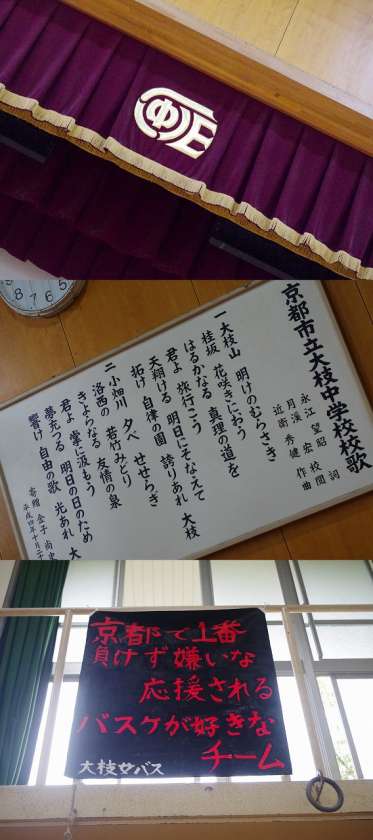 8 7 6 5
京都市立大枝中学校校歌
近衛 秀健 作曲
一 大枝山 明けのむらさき
桂坂 花咲きにおう
はるかなる 真理の道を
君よ 旅行こう
天翔ける 明日にそなえて
拓け 自律の園 誇りあれ 大枝
二 小畑川 夕べ せせらぎ
洛西の 若竹みどり
きよらなる 友情の泉
君よ 掌に汲もう
夢充つる 明日の日のため
響け 自由の歌 光あれ 大
寄贈 金子 尚史
平成四年十月二十
京都で1番
負けず嫌いな
応援される
バスケが好きな
チーム
大枝女バス